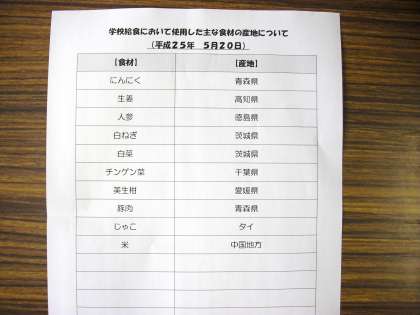 学校給食において使用した主な食材の産地について
（平成２５年　５月２０日）
【食材】 【産地】
にんにく 青森県
生姜 高知県
人参 徳島県
白ねぎ 茨城県
白菜 茨城県
チンゲン菜 千葉県
美生柑 愛媛県
豚肉 青森県
じゃこ タイ
米 中国地方